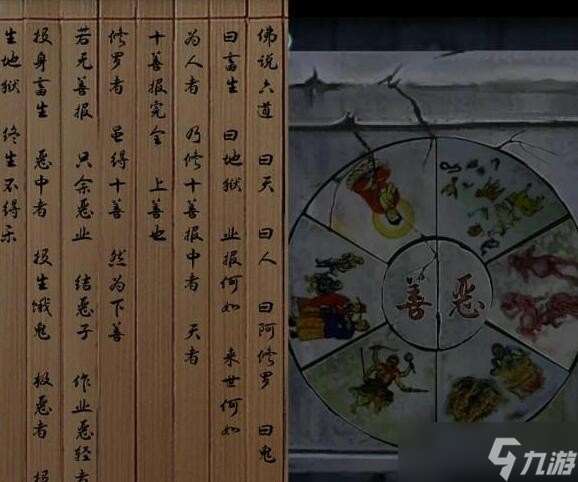 佛说六道 曰天 曰人 曰阿修罗 曰鬼
曰畜生 曰地狱 业报何如 来世何如
为人者 乃修十善报中者 天者
十善报完全 上善也
修罗者 虽得十善 然为下善
若无善报 只余恶业 结恶子 作业恶轻者
投身畜生 恶中者 投生饿鬼 极恶者 投
生地狱 终生不得乐
善 恶
九游